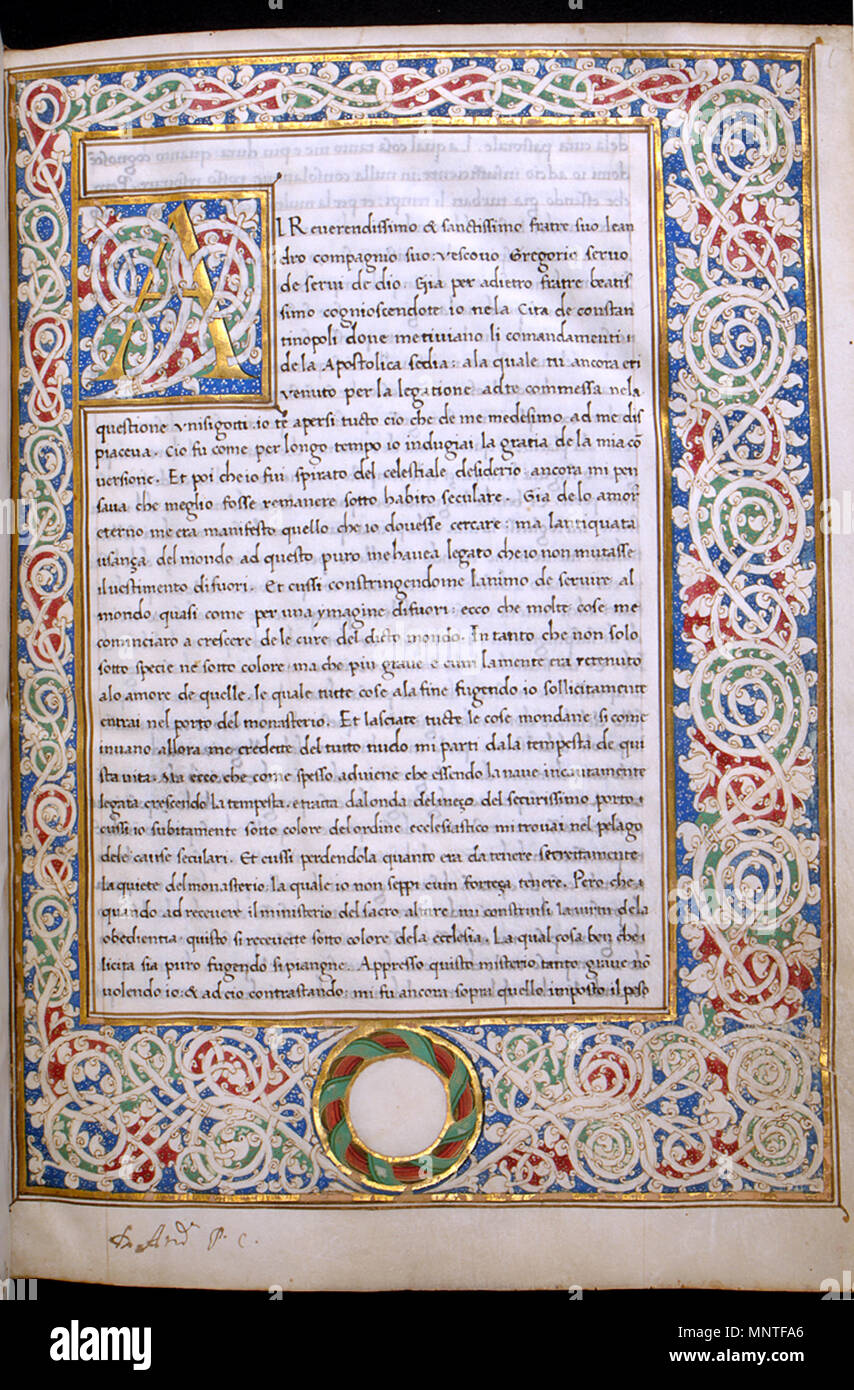 AL Reuerendissimo & sanctissimo fratre suo lean
dro compagnio suo vescouo Gregorio seruo
de serui de dio. Gia per adietro fratre beatis
simo cognioscendote io ne la Cita de constan
tinopoli doue me tiuiano li comandamenti
de la Apostolica sedia: a la quale tu ancora eri
venuto per la legatione ad te commessa ne la
questione vnisigotti. io te apersi tucto cio che de me medesimo ad me dis
piaceua. Cio fu come per longo tempo io indugiai la gratia de la mia cō
uersione. Et poi che io fui spirato del celestiale desiderio ancora mi pen
saua che meglio fosse remanere sotto habito seculare. Gia de lo amor
eterno me era manifesto quello che io douesse cercare: ma lantiquata
usança del mondo ad questo puro me hauea legato che io non mutasse
il uestimento di fuori. Et cussi constringendome lanimo de seruire al
mondo quasi come per una ymagine di fuori: ecco che molte cose me
cominciaro a crescere de le cure del dicto mondo. In tanto che non solo
sotto specie ne sotto colore: ma che piu graue e cum la mente era retenuto
a lo amore de quelle. le quale tutte cose a la fine fugendo io sollicitamente
entrai nel porto del monasterio. Et lasciate tucte le cose mondane, si come
inuano allora me credette del tutto nudo mi parti da la tempesta de qui
sta uita. Ma ecco, che come spesso aduiene che essendo la naue incautamente
legata crescendo la tempesta, e tracta da londa del meço del securissimo porto,
cussi io subitamente sotto colore del ordine ecclesiastico mi trouai nel pelago
dele cause seculari. Et cussi perdendola quanto era da tenere strectamente
la quiete del monasterio, la quale io non seppi cum forteça tenere. Pero che
quando ad receuere il ministerio del sacro altare mi constrinsi la uirtu de la
obedientia quisto si receuette sotto colore de la ecclesia. La qual cosa ben che
licita sia puro fugendo si piangne. Appresso quisto misterio tanto graue nō
uolendo io & ad cio contrastando: mi fu ancora sopra quello imposto il peso
And. P. C.
alamy
Image ID: MNTFA6
www.alamy.com